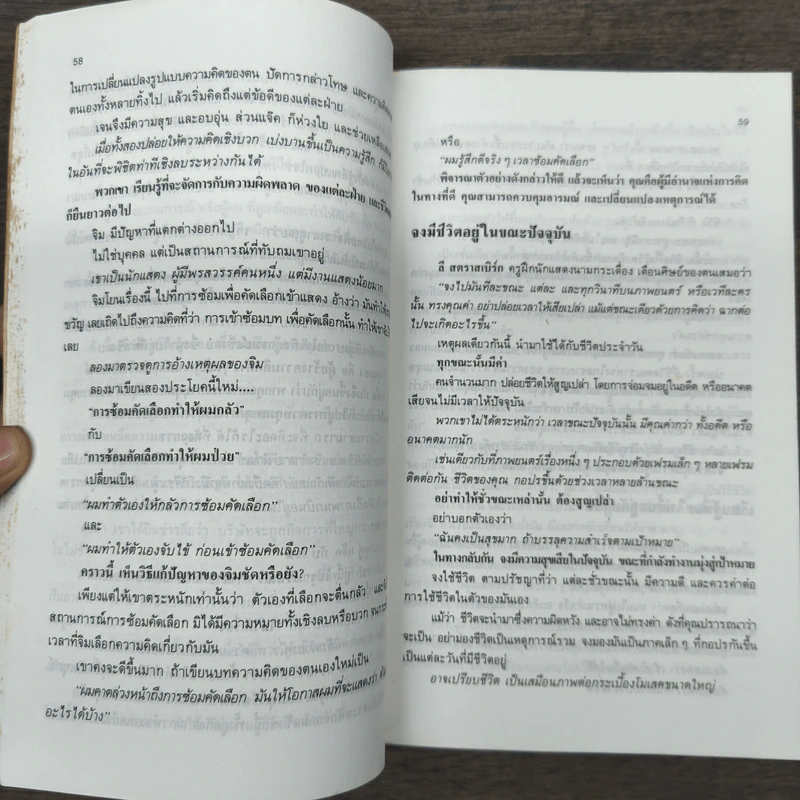 58
ในการเปลี่ยนแปลงรูปแบบความคิดของตน ปัดการกล่าวโทษ และความคิด
ตนเองทั้งหลายทิ้งไป แล้วเริ่มคิดถึงแต่ข้อดีของแต่ละฝ่าย
เจนจึงมีความสุข และอบอุ่น ส่วนแจ๊ค ก็ห่วงใย และช่วยเหลือ
เมื่อทั้งสองปล่อยให้ความคิดเชิงบวก เบ่งบานขึ้นเป็นความรู้สึก
ในอันที่จะพิชิตท่าทีเชิงลบระหว่างกันได้
พวกเขา เรียนรู้ที่จะจัดการกับความผิดพลาด ของแต่ละฝ่าย และชีวิต
ก็ยืนยาวต่อไป
จิม มีปัญหาที่แตกต่างออกไป
ไม่ใช่บุคคล แต่เป็นสถานการณ์ที่ทับถมเขาอยู่
เขาเป็นนักแสดง ผู้มีพรสวรรค์คนหนึ่ง แต่มีงานแสดงน้อยมาก
จิมโยนเรื่องนี้ ไปที่การซ้อมเพื่อคัดเลือกเข้าแสดง อ้างว่า มันทำให้
ขวัญ เลยเถิดไปถึงความคิดที่ว่า การเข้าซ้อมบท เพื่อคัดเลือกนั้น ทำให้เขา
เลย
ลองมาตรวจดูการอ้างเหตุผลของจิม
ลองมาเขียนสองประโยคนี้ใหม่....
“การซ้อมคัดเลือกทำให้ผมกลัว”
กับ
“การซ้อมคัดเลือกทำให้ผมป่วย”
เปลี่ยนเป็น
“ผมทำตัวเองให้กลัวการซ้อมคัดเลือก”
และ
“ผมทำให้ตัวเองจับไข้ ก่อนเข้าซ้อมคัดเลือก”
คราวนี้ เห็นวิธีแก้ปัญหาของจิมชัดหรือยัง?
เพียงแต่ให้เขาตระหนักเท่านั้นว่า ตัวเองที่เลือกจะตื่นกลัว และ
สถานการณ์การซ้อมคัดเลือก มิได้มีความหมายทั้งเชิงลบหรือบวก จนกระ
เวลาที่จิมเลือกความคิดเกี่ยวกับมัน
เขาคงจะดีขึ้นมาก ถ้าเขียนบทความคิดของตนเองใหม่เป็น
“ผมคาดล่วงหน้าถึงการซ้อมคัดเลือก มันให้โอกาสผมที่จะแสดงว่า
อะไรได้บ้าง”
59
หรือ
“ผมรู้สึกดีจริง ๆ เวลาซ้อมคัดเลือก”
พิจารณาตัวอย่างดังกล่าวให้ดี แล้วจะเห็นว่า คุณคือผู้มีอำนาจแห่งการคิด
ในทางที่ดี คุณสามารถควบคุมอารมณ์ และเปลี่ยนแปลงเหตุการณ์ได้
จงมีชีวิตอยู่ในขณะปัจจุบัน
ลี สตราสเบิร์ก ครูฝึกนักแสดงนามกระเดื่อง เตือนศิษย์ของตนเสมอว่า
“จงไปมันทีละขณะ แต่ละ และทุกวินาทีบนภาพยนตร์ หรือเวทีละคร
นั้น ทรงคุณค่า อย่าปล่อยเวลาให้เสียเปล่า แม้แต่ขณะเดียวด้วยการคิดว่า ฉากต่อ
ไปจะเกิดอะไรขึ้น”
เหตุผลเดียวกันนี้ นำมาใช้ได้กับชีวิตประจำวัน
ทุกขณะนั้นมีค่า
คนจำนวนมาก ปล่อยชีวิตให้สูญเปล่า โดยการจ่อมจมอยู่ในอดีต หรืออนาคต
เสียจนไม่มีเวลาให้ปัจจุบัน
พวกเขาไม่ได้ตระหนักว่า เวลาขณะปัจจุบันนั้น มีคุณค่ากว่า ทั้งอดีต หรือ
อนาคตมากนัก
เช่นเดียวกับที่ภาพยนตร์เรื่องหนึ่ง ๆ ประกอบด้วยเฟรมเล็ก ๆ หลายเฟรม
ติดต่อกัน ชีวิตของคุณ ก่อปรขึ้นด้วยช่วงเวลาหลายล้านขณะ
อย่าทำให้ชั่วขณะเหล่านั้น ต้องสูญเปล่า
อย่าบอกตัวเองว่า
“ฉันคงเป็นสุขมาก ถ้าบรรลุความสำเร็จตามเป้าหมาย”
ในทางกลับกัน จงมีความสุขเสียในปัจจุบัน ขณะที่กำลังทำงานมุ่งสู่เป้าหมาย
จงใช้ชีวิต ตามปรัชญาที่ว่า แต่ละชั่วขณะนั้น มีความดี และควรค่าต่อ
การใช้ชีวิตในตัวของมันเอง
แม้ว่า ชีวิตจะนำมาซึ่งความผิดหวัง และอาจไม่ทรงค่า ดังที่คุณปรารถนาว่า
จะเป็น อย่ามองชีวิตเป็นเหตุการณ์รวม จงมองมันเป็นภาคเล็ก ๆ ที่กอปรกันขึ้น
เป็นแต่ละวันที่มีชีวิตอยู่
อาจเปรียบชีวิต เป็นเสมือนภาพต่อกระเบื้องโมเสคขนาดใหญ่